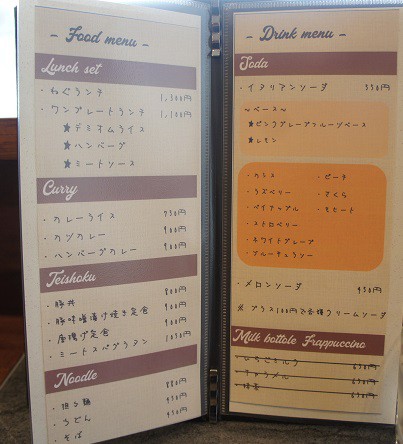 - Food menu -
Lunch set
・ねぐランチ 1,300円
・ワンプレートランチ 1,100円
★デミオムライス
★ハンバーグ
★ミートソース
Curry
・カレーライス 750円
・カツカレー 900円
・ハンバーグカレー 900円
Teishoku
・豚丼 800円
・豚味噌漬け焼き定食 900円
・唐揚げ定食 900円
・ミートスパゲッティ 1050円
Noodle
・担々麺 880円
・うどん 550円
・そば
- Drink menu -
Soda
・イタリアンソーダ 550円
~ベース~
★ピンクグレープフルーツベース
★レモン
・カシス ・ピーチ
・ラズベリー ・さくら
・パイナップル ・モヒート
・ストロベリー
・ホワイトグレープ
・ブルーキュラソー
・メロンソーダ 450円
※プラス100円で各種クリームソーダ
Milk bottole Frappuccino
650円
・キャラメル 650円
・抹茶 650円